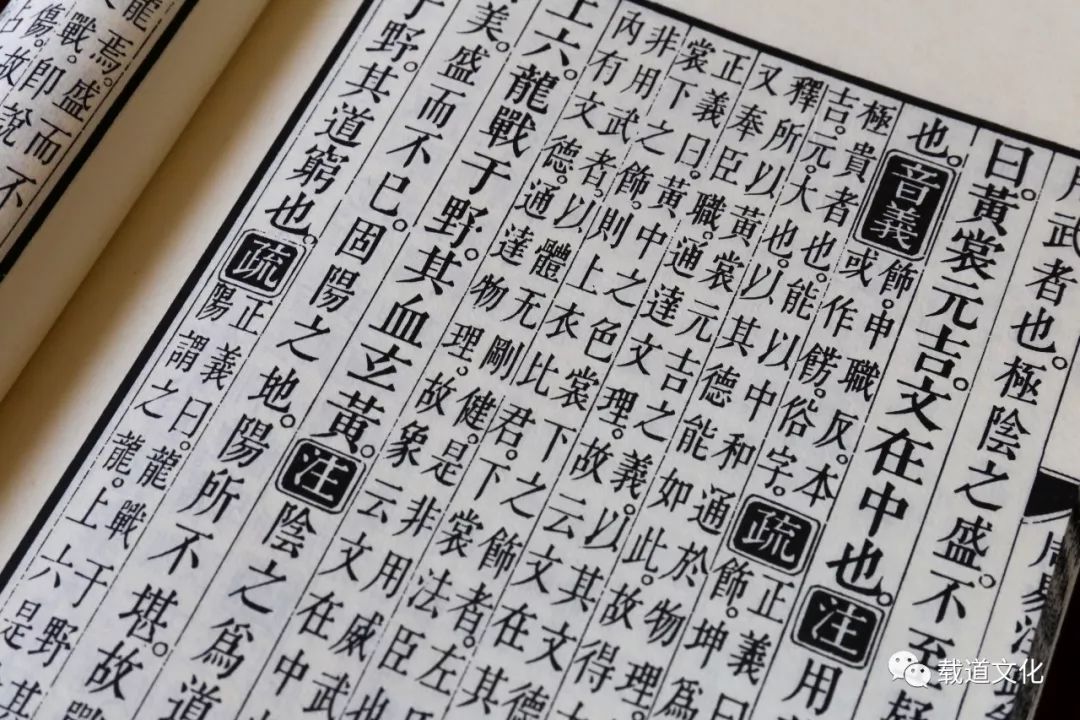 周易注疏
用武者也。極陰之盛。不至疑
曰。黃裳元吉。文在中也。注用
也。音義飾。申職反。本
或作餝。俗字。
疏正義曰
飾。坤爲
極貴者也。能以中和通於物理。
吉。元大也。以其德能如此。故得
釋所以黃裳元吉之義。以其文德
又奉臣職。通達文理。故云文在其
正義曰。黃中之色。裳下之飾者。左
裳下之飾。則上衣比君。下裳法臣也
非用武者。以體无剛健。是非用威武
內有文德。通達物理。故象云文在中
上六。龍戰于野。其血玄黃。注陰之爲道
美。盛而不已。固陽之地。陽所不堪。故
于野其道窮也。疏正義曰。龍戰于野
陽謂之龍。上六是
焉。盛而不
戰。
傷。
载道文化